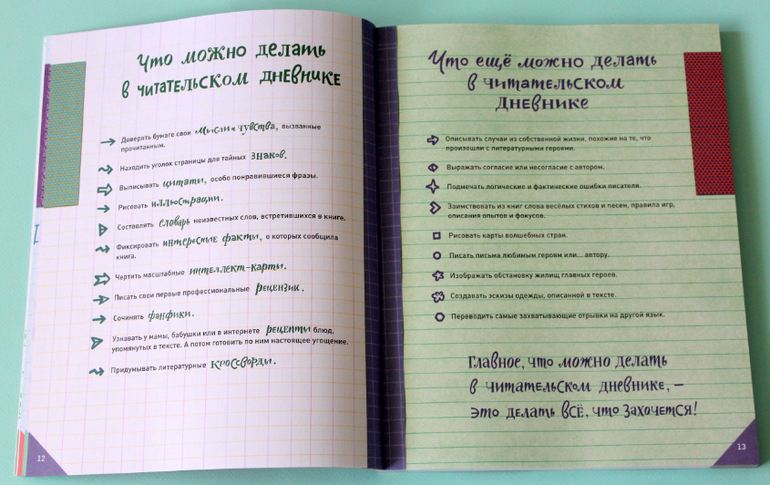 Что можно делать
в читательском дневнике
Доверять бумаге свои мысли и чувства, вызванные
прочитанным.
Находить уголок страницы для тайных знаков.
Выписывать цитаты, особо понравившиеся фразы.
Рисовать иллюстрации.
Составлять словарь неизвестных слов, встретившихся в книге.
Фиксировать интересные факты, о которых сообщила
книга.
Чертить масштабные интеллект-карты.
Писать свои первые профессиональные рецензии.
Сочинять фанфики.
Узнавать у мамы, бабушки или в интернете рецепты блюд,
упомянутых в тексте. А потом готовить по ним настоящее угощение.
Придумывать литературные кроссворды.
12
Что ещё можно делать
в читательском
дневнике
Описывать случаи из собственной жизни, похожие на те, что
произошли с литературными героями.
Выражать согласие или несогласие с автором.
Подмечать логические и фактические ошибки писателя.
Заимствовать из книг слова весёлых стихов и песен, правила игр,
описания опытов и фокусов.
Рисовать карты волшебных стран.
Писать письма любимым героям или... автору.
Изображать обстановку жилищ главных героев.
Создавать эскизы одежды, описанной в тексте.
Переводить самые захватывающие отрывки на другой язык.
Главное, что можно делать
в читательском дневнике, –
это делать всё, что захочется!
13